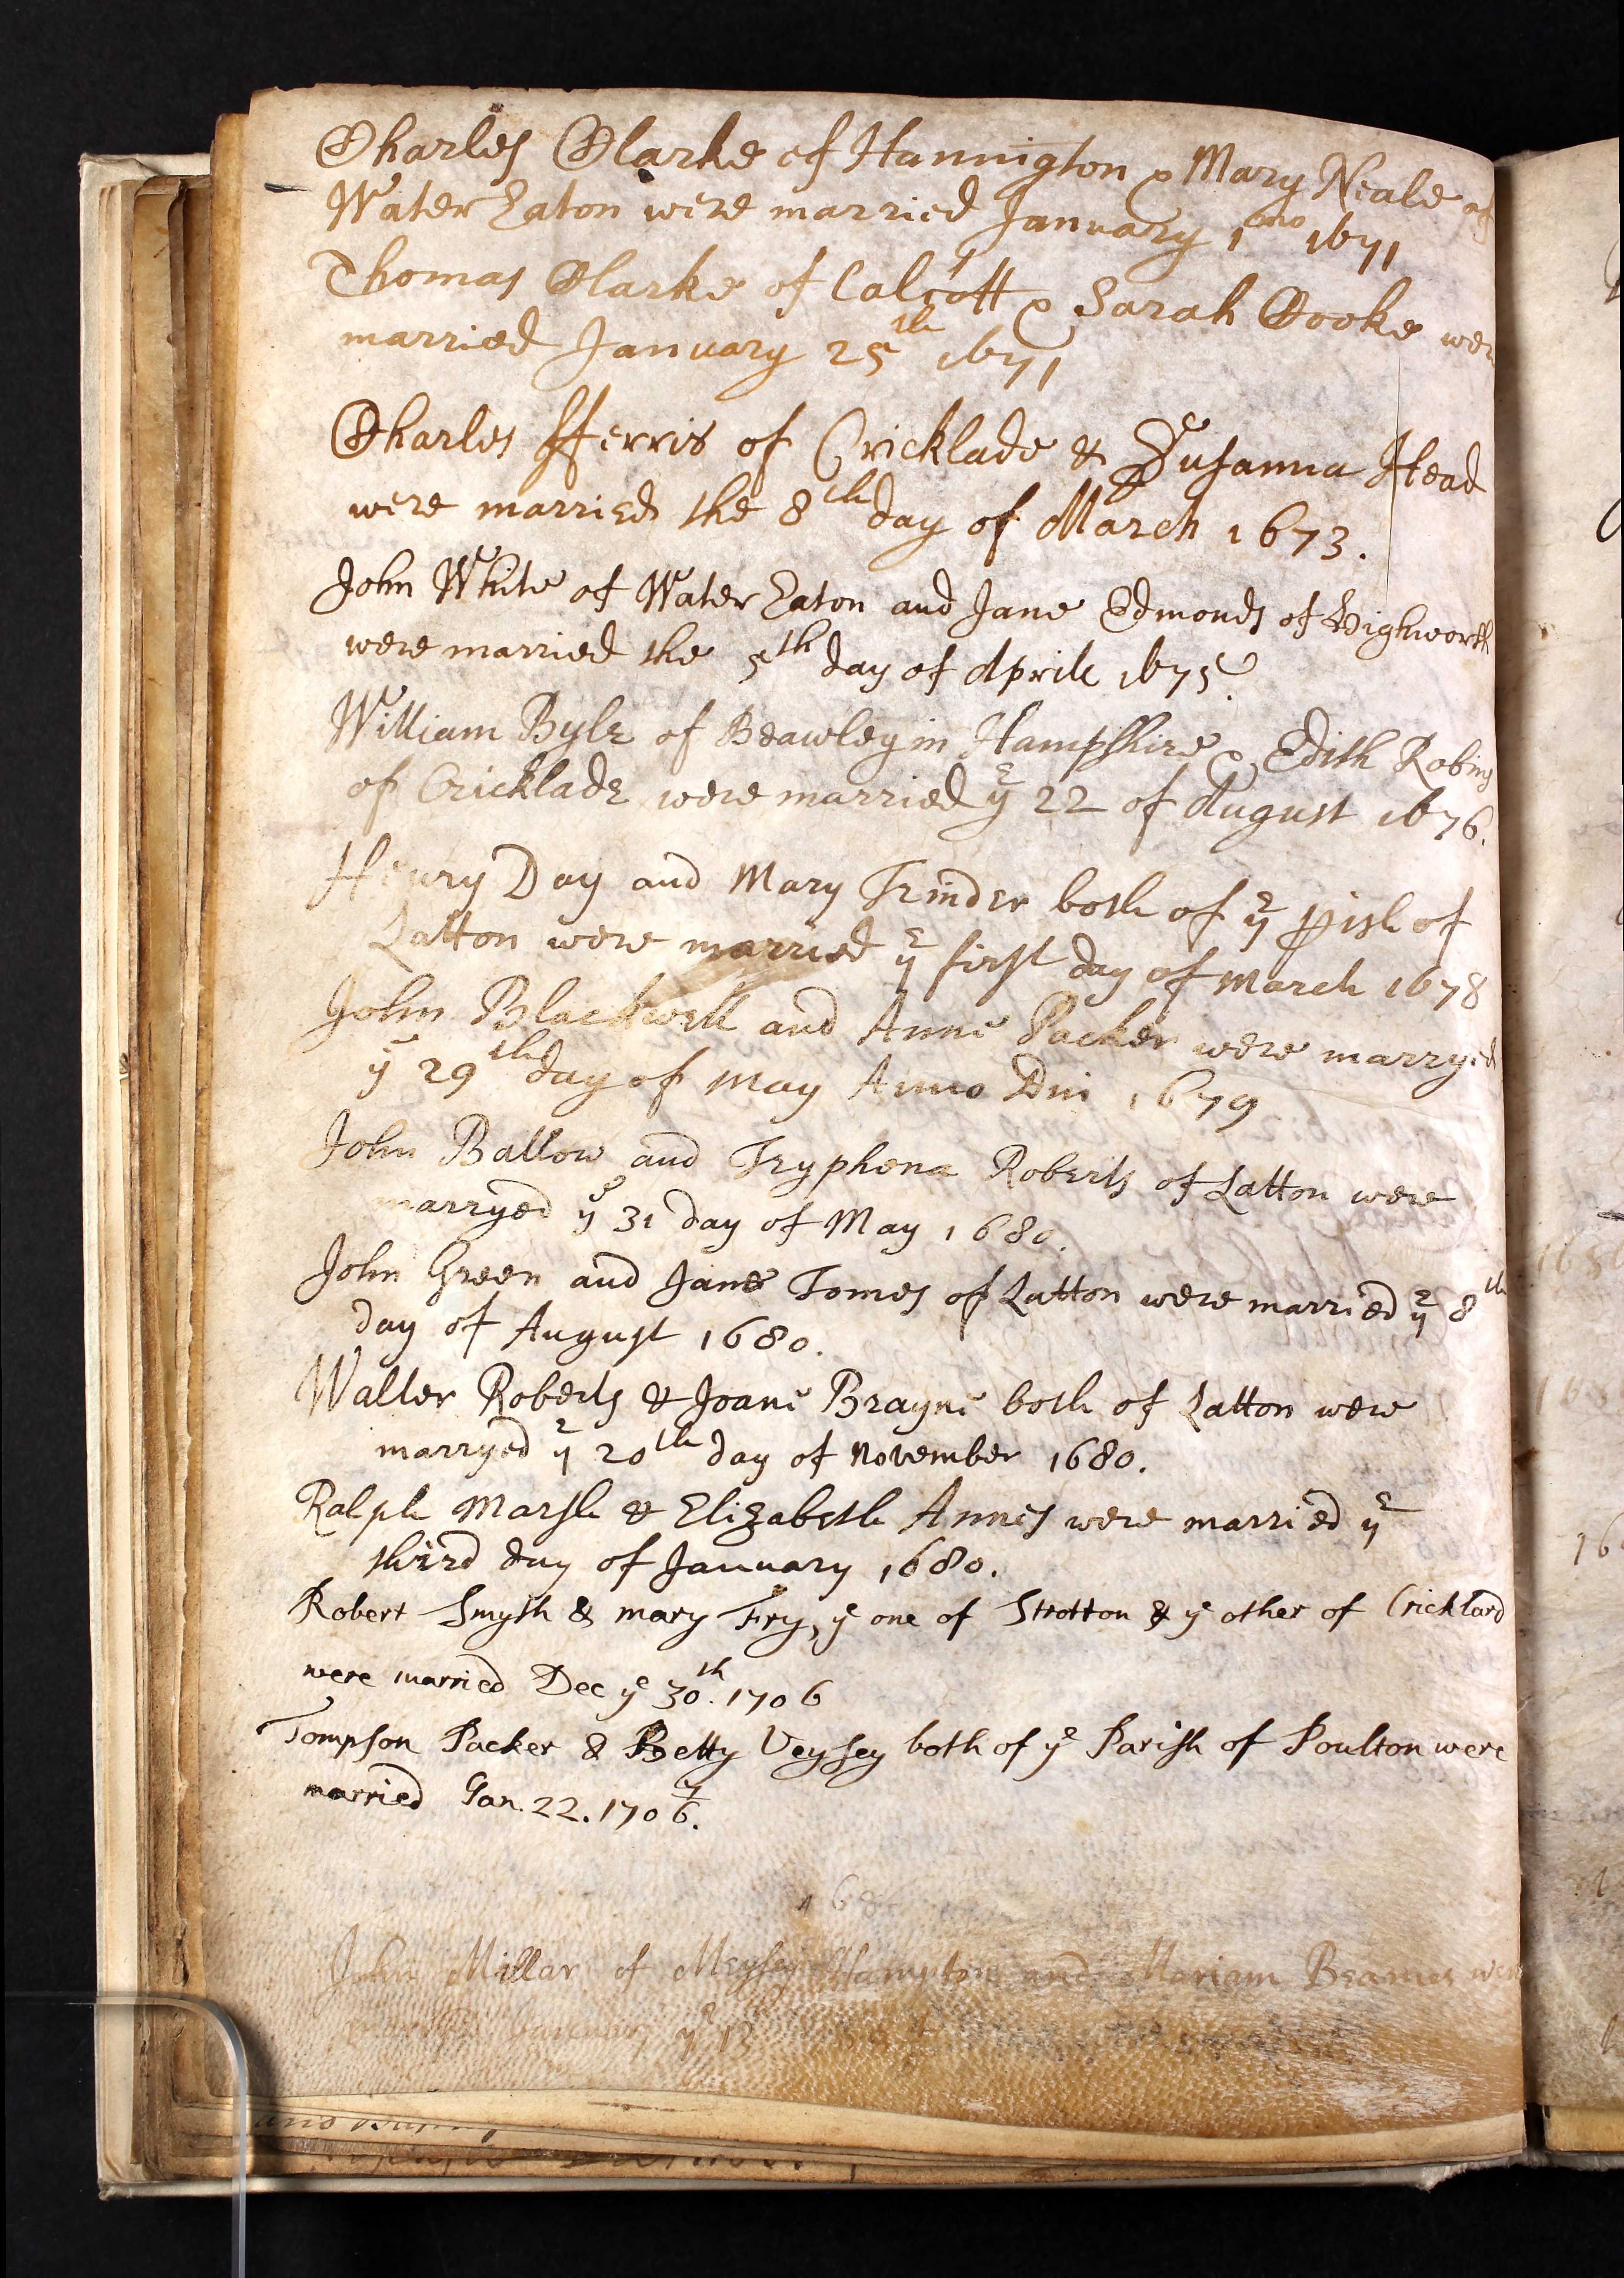 Charles Clarke of Hannington & Mary Neale of
Water Eaton were married January 1mo 1671
Thomas Clarke of Calcott & Sarah Cooke were
married January 25th 1671
Charles fferris of Cricklade & Susanna Head
were married the 8th day of March 1673.
John White of Water Eaton and Jane Edmonds of Highworth
were married the 5th day of Aprill 1675.
William Byle of Beawley in Hampshire & Edith Robins
of Cricklade were married ye 22 of August 1676.
Henry Day and Mary Trinder both of ye pish of
Latton were married ye first day of March 1678
John Blackwell and Anne Packer were marryed
ye 29th day of May Anno Dni 1679
John Ballow and Tryphena Roberts of Latton were
marryed ye 31 day of May 1680.
John Green and Jane Tomes of Latton were married ye 8th
day of August 1680.
Walter Roberts & Joane Brayne both of Latton were
marryed ye 20th day of November 1680.
Ralph Marsh & Elizabeth Annes were married ye
third day of January 1680.
Robert Smyth & mary Fry, ye one of Stratton & ye other of Cricklard
were married Dec ye 30th. 1706
Tompson Packer & Betty Veysey both of ye Parish of Poulton were
married Jan. 22. 170 7/6.
168
John Millar of Meysey Hampton and Mariam Beames were
January ye 13
and